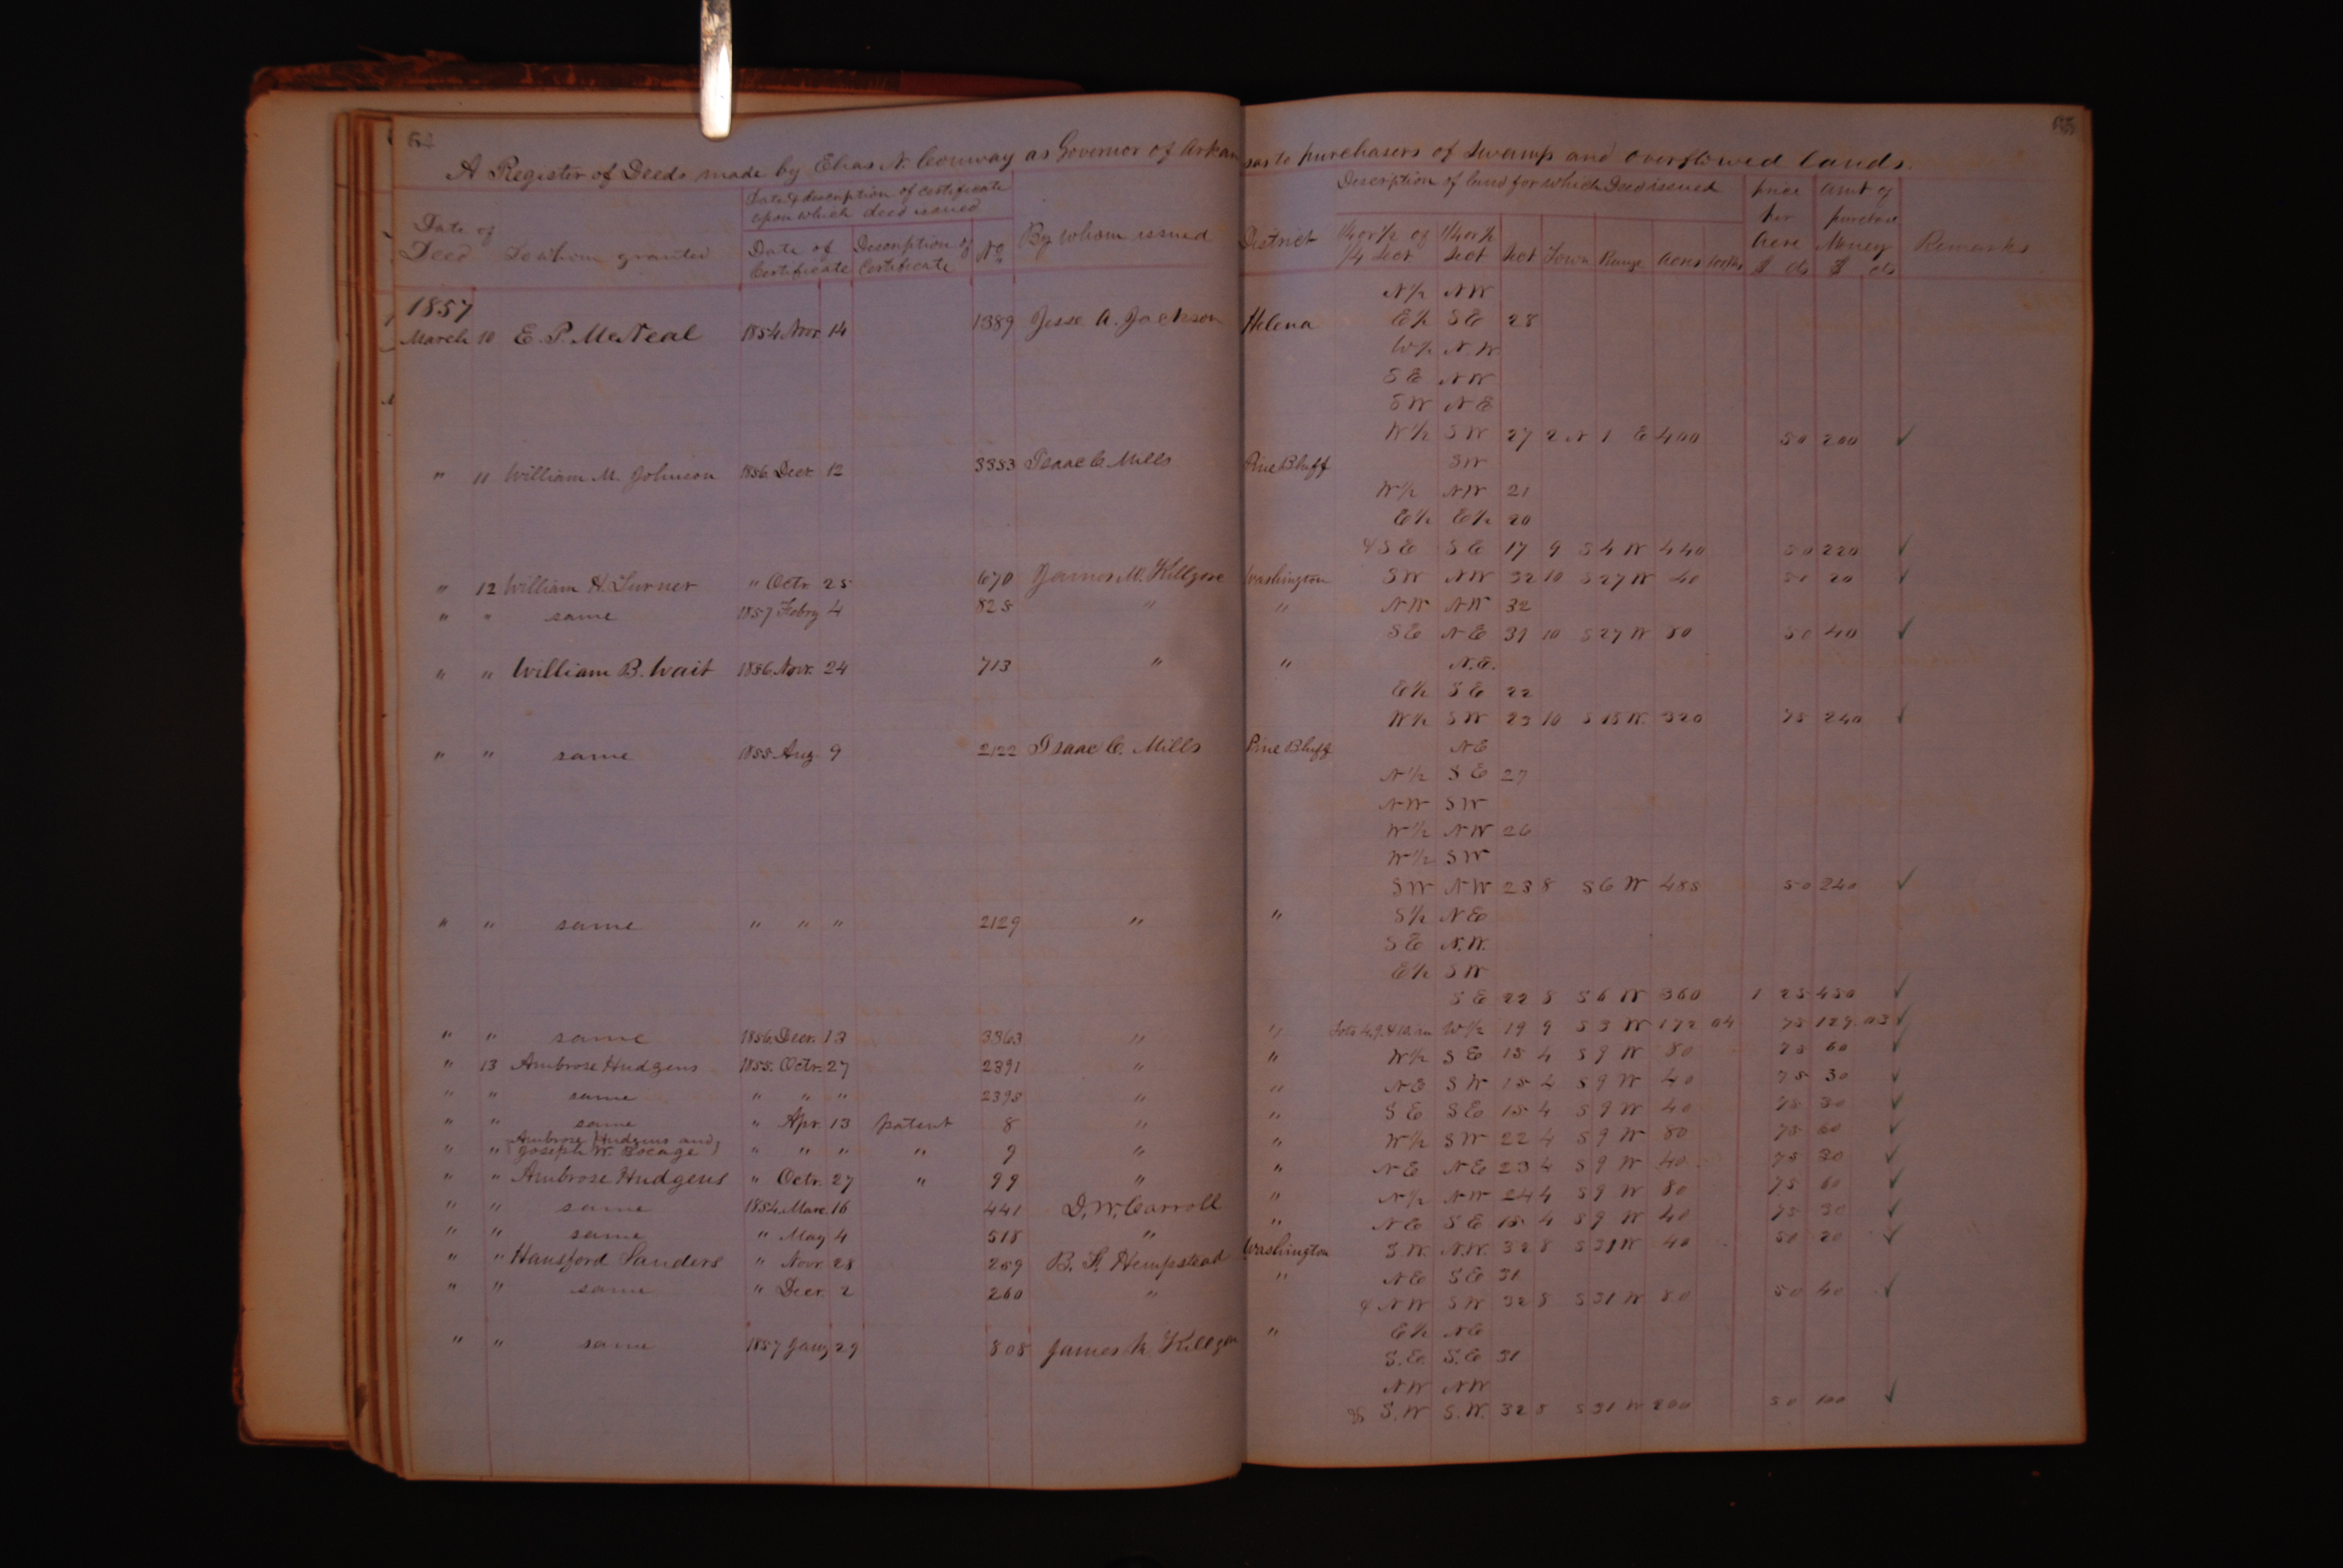 64
A Register of Deeds made by Elias N. Conway as Governor of Arkansas to purchasers of Swamp and overflowed lands.
Date of Deed To whom granted Date & description of certificate upon which deed issued By whom issued District Description of land for which Deed issued price per Acre amt of purchase Money Remarks
Date of Certificate Description of Certificate No 1/4 or 1/2 of 1/4 Sect 1/4 or 1/2 Sect Sect Town Range Acres 100ths $ cts $ cts
1857 N/2 NW
March 10 E. P. McNeal 1854 Novr. 14 1389 Jesse A. Jackson Helena E/2 SE 28
W/2 N.W.
SE NW
SW NE
W/2 SW 27 2 N 1 E 400 50 200 ✓
" 11 William M. Johnson 1856 Decr. 12 3353 Isaac C. Mills Pine Bluff SW
W/2 NW 21
E1/2 E1/2 20
& SE SE 17 9 S 4 W 440 50 220 ✓
" 12 William H. Turner " Octr 25 670 James M. Killgore Washington SW NW 32 10 S 27 W 40 50 20 ✓
" " same 1857 Febry 4 825 " " NW NW 32
SE NE 31 10 S 27 W 80 50 40 ✓
" " William B. Wait 1856 Novr. 24 713 " " N.E.
E1/2 SE 22
W1/2 SW 23 10 S 15 W. 320 75 240 ✓
" " same 1855 Aug 9 2122 Isaac C. Mills Pine Bluff NE
N1/2 SE 27
NW SW
W1/2 NW 26
W1/2 SW
SW NW 23 8 S 6 W 485 50 240 ✓
" " same " " " 2129 " " S1/2 NE
SE N.W.
E1/2 SW
SE 22 8 S 6 W 360 1 25 450 ✓
" " same 1856 Decr. 13 3363 " " Lots 4, 9, & 10 in W1/2 19 9 S 3 W 172 04 75 129 03 ✓
" 13 Ambrose Hudgens 1855. Octr. 27 2391 " " W1/2 SE 15 4 S 9 W 80 75 60 ✓
" " same " " " 2395 " " NE SW 15 4 S 9 W 40 75 30 ✓
" " same " Apr. 13 patent 8 " " SE SE 15 4 S 9 W 40 75 30 ✓
" " Ambrose Hudgens and Joseph W. Bocage " " " " 9 " " W1/2 SW 22 4 S 9 W 80 75 60 ✓
" " Ambrose Hudgens " Octr. 27 " 99 " " NE NE 23 4 S 9 W 40 75 30 ✓
" " same 1854 Marc 16 441 D. W. Carroll " N/2 NW 24 4 S 9 W 80 75 60 ✓
" " same " May 4 518 " " NE SE 15 4 S 9 W 40 75 30 ✓
" " Hansford Sanders " Novr. 28 259 B. F. Hempstead Washington S.W. N.W. 32 8 S 31 W 40 50 20 ✓
" " same " Decr. 2 260 " " NE SE 31
& NW SW 32 8 S 31 W 80 50 40 ✓
" " same 1857 Jany 29 808 James M. Killgore " E1/2 NE
S.E. S.E 31
NW NW
& S.W S.W. 32 8 S 31 W 200 50 100 ✓